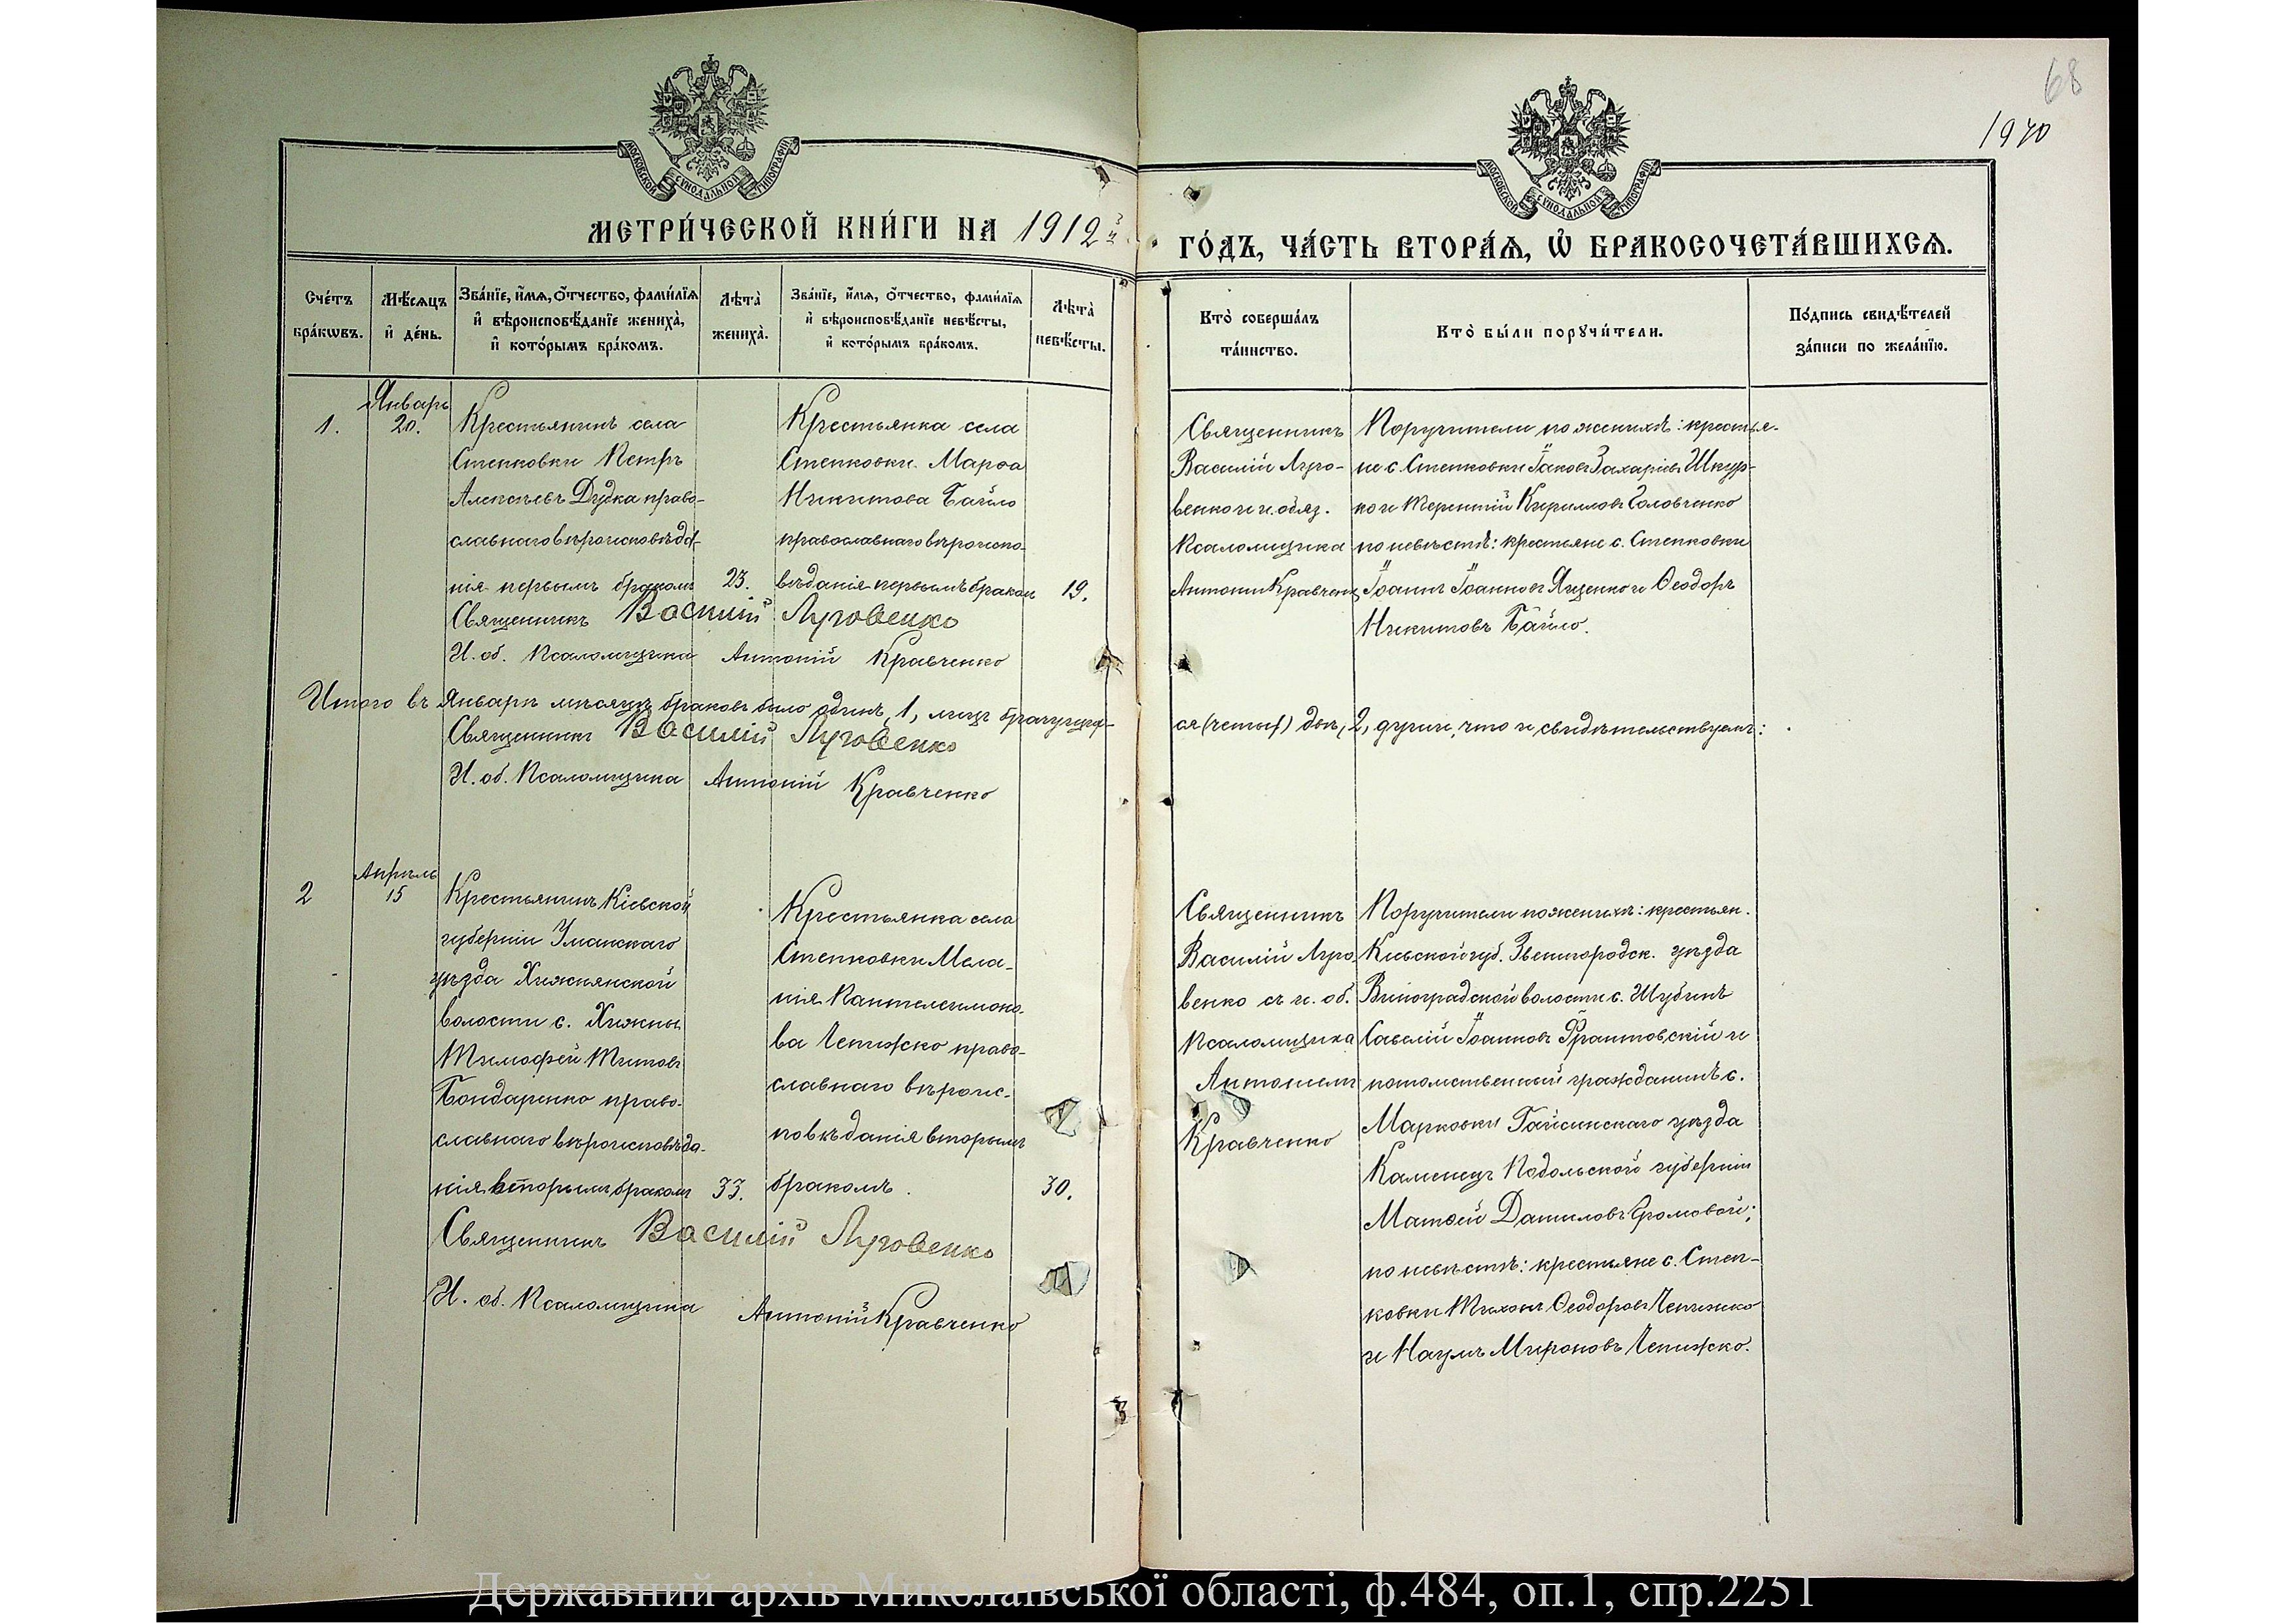 68
1970
МОСКОВСКОЙ СѴНОДАЛЬНОЙ ТИПОГРАФІИ
МОСКОВСКОЙ СѴНОДАЛЬНОЙ ТИПОГРАФІИ
МЕТРИ́ЧЕСКОЙ КНИ́ГИ НА 1912
ГО́ДЪ, ЧА́СТЬ ВТОРА́Ѧ, Ѡ҆ БРАКОСОЧЕТА́ВШИХСѦ.
Сче́тъ
бра́кѡвъ.
Мѣ́сѧцъ
и҆ де́нь.
Зва́нїе, и҆́мѧ, ѻ҆́тчество, фами́лїѧ
и҆ вѣроисповѣ́данїе жениха̀,
и҆ кото́рымъ бра́комъ.
Лѣта̀
жениха̀.
Зва́нїе, и҆́мѧ, ѻ҆́тчество, фами́лїѧ
и҆ вѣроисповѣ́данїе невѣ́сты,
и҆ кото́рымъ бра́комъ.
Лѣта̀
невѣ́сты.
Кто̀ соверша́лъ
та́инство.
Кто̀ бы́ли порꙋчи́тели.
По́дпись свидѣ́телей
за́писи по жела́нїю.
1.
Январь
20.
Крестьянинъ села
Степковки Петръ
Алексѣевъ Дудка право-
славнаго вѣроисповѣда-
нія первымъ бракомъ
23.
Крестьянка села
Степковки Марѳа
Никитова Байло
православнаго вѣроиспо-
вѣданія первымъ бракомъ
19.
Священникъ
Василій Луго-
венко и и. обяз.
Псаломщика
Антоній Кравченко
Поручители по женихѣ: крестья-
не с. Степковки Іаковъ Захаріевъ Шкур-
ко и Терентій Кирилловъ Головченко
по невѣстѣ: крестьяне с. Степковки
Іоаннъ Іоанновъ Яценко и Ѳеодоръ
Никитовъ Байло.
Священникъ Василій Луговенко
И. об. Псаломщика Антоній Кравченко
Итого въ Январѣ мѣсяцѣ браковъ было одинъ, 1, лицъ брачущих-
ся (четыр) двѣ, 2, души, что и свидѣтельствуемъ:
Священникъ Василій Луговенко
И. об. Псаломщика Антоній Кравченко
2
Апрѣль
15
Крестьянинъ Кіевской
губерніи Уманскаго
уѣзда Хижнянской
волости с. Хижны
Тимофей Титовъ
Бондаренко право-
славнаго вѣроисповѣда-
нія вторымъ бракомъ
33.
Крестьянка села
Степковки Мела-
нія Пантелеимоно-
ва Чепижко право-
славнаго вѣроис-
повѣданія вторымъ
бракомъ.
30.
Священникъ
Василій Луго-
венко съ и. об.
Псаломщика
Антоніемъ
Кравченко
Поручители по женихѣ: крестьян.
Кіевской губ. Звенигородск. уѣзда
Виноградской волости с. Шубинъ
Савелій Іоанновъ Франтовскій и
потомственный гражданинъ с.
Марковки Гайсинскаго уѣзда
Каменецъ Подольской губерніи
Матѳей Даниловъ Громовой;
по невѣстѣ: крестьяне с. Степ-
ковки Тихонъ Ѳеодоровъ Чепижко
и Наумъ Мироновъ Чепижко.
Священникъ Василій Луговенко
И. об. Псаломщика Антоній Кравченко
Державний архів Миколаївської області, ф.484, оп.1, спр.2251